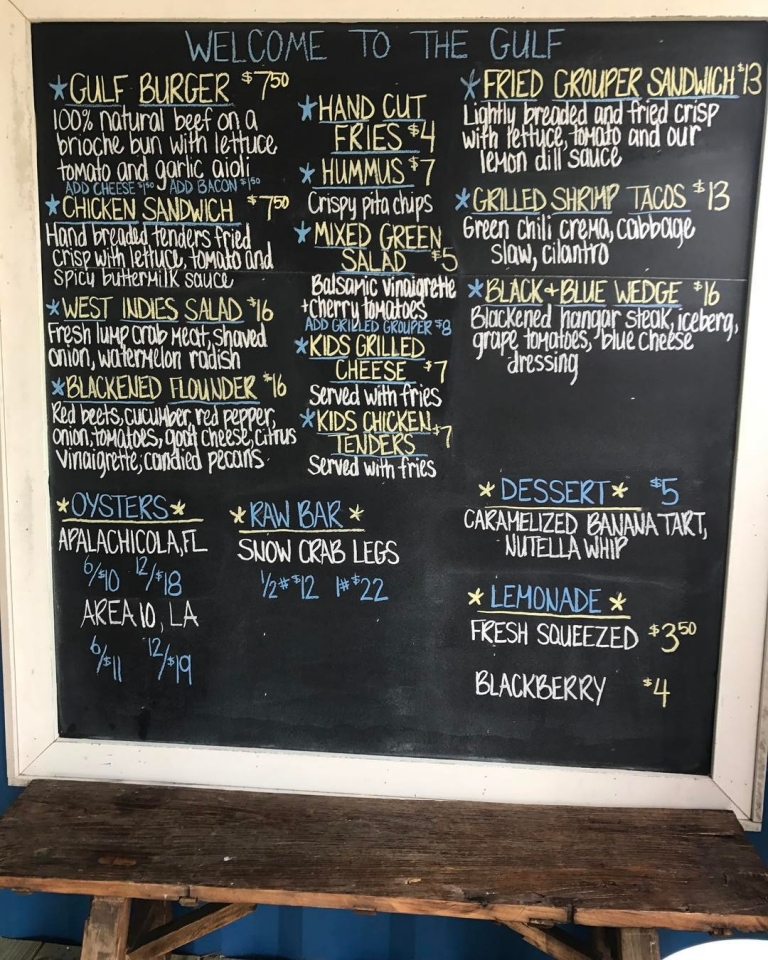 WELCOME TO THE GULF
*GULF BURGER $7.50
100% natural beef on a
brioche bun with lettuce
tomato and garlic aioli
ADD CHEESE $1.50 ADD BACON $1.50
*CHICKEN SANDWICH $7.50
Hand breaded tenders fried
crisp with lettuce, tomato and
spicy buttermilk sauce
*WEST INDIES SALAD $16
Fresh lump crab meat, shaved
onion, watermelon radish
*BLACKENED FLOUNDER $16
Red beets, cucumber, red pepper,
onion, tomatoes, goat cheese, citrus
vinaigrette, candied pecans
*HAND CUT
FRIES $4
*HUMMUS $7
Crispy pita chips
*MIXED GREEN
SALAD $5
Balsamic vinaigrette
+cherry tomatoes
ADD GRILLED GROUPER $8
*KIDS GRILLED
CHEESE $7
Served with fries
*KIDS CHICKEN
TENDERS $7
Served with fries
*FRIED GROUPER SANDWICH $13
Lightly breaded and fried crisp
with lettuce, tomato and our
lemon dill sauce
*GRILLED SHRIMP TACOS $13
Green chili crema, cabbage
slaw, cilantro
*BLACK+BLUE WEDGE $16
Blackened hangar steak, iceberg,
grape tomatoes, blue cheese
dressing
*OYSTERS*
APALACHICOLA, FL
6/$10 12/$18
AREA 10, LA
6/$11 12/$19
*RAW BAR*
SNOW CRAB LEGS
1/2# $12 1# $22
*DESSERT* $5
CARAMELIZED BANANA TART,
NUTELLA WHIP
*LEMONADE*
FRESH SQUEEZED $3.50
BLACKBERRY $4